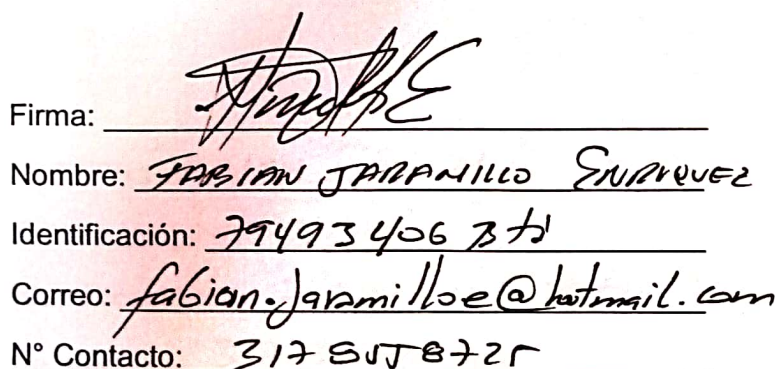 Firma:
Nombre: FABIAN JARAMILLO ENRIQUEZ
Identificación: 79493406 Bta
Correo: fabian.jaramilloe@hotmail.com
N° Contacto: 317